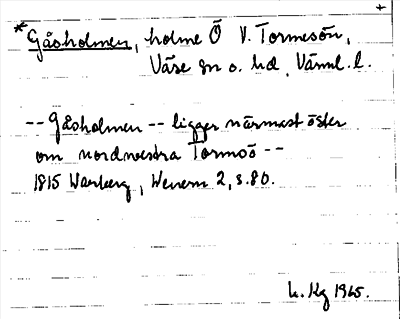 +
*Gåsholmen, holme Ö V. Tormesön,
Väse sn o. hd, Värml. l.
-- Gåsholmen -- ligger närmast öster
om nordvestra Tormsö --
1815 Warberg, Wenern 2, s. 80.
L. Hg 1965.